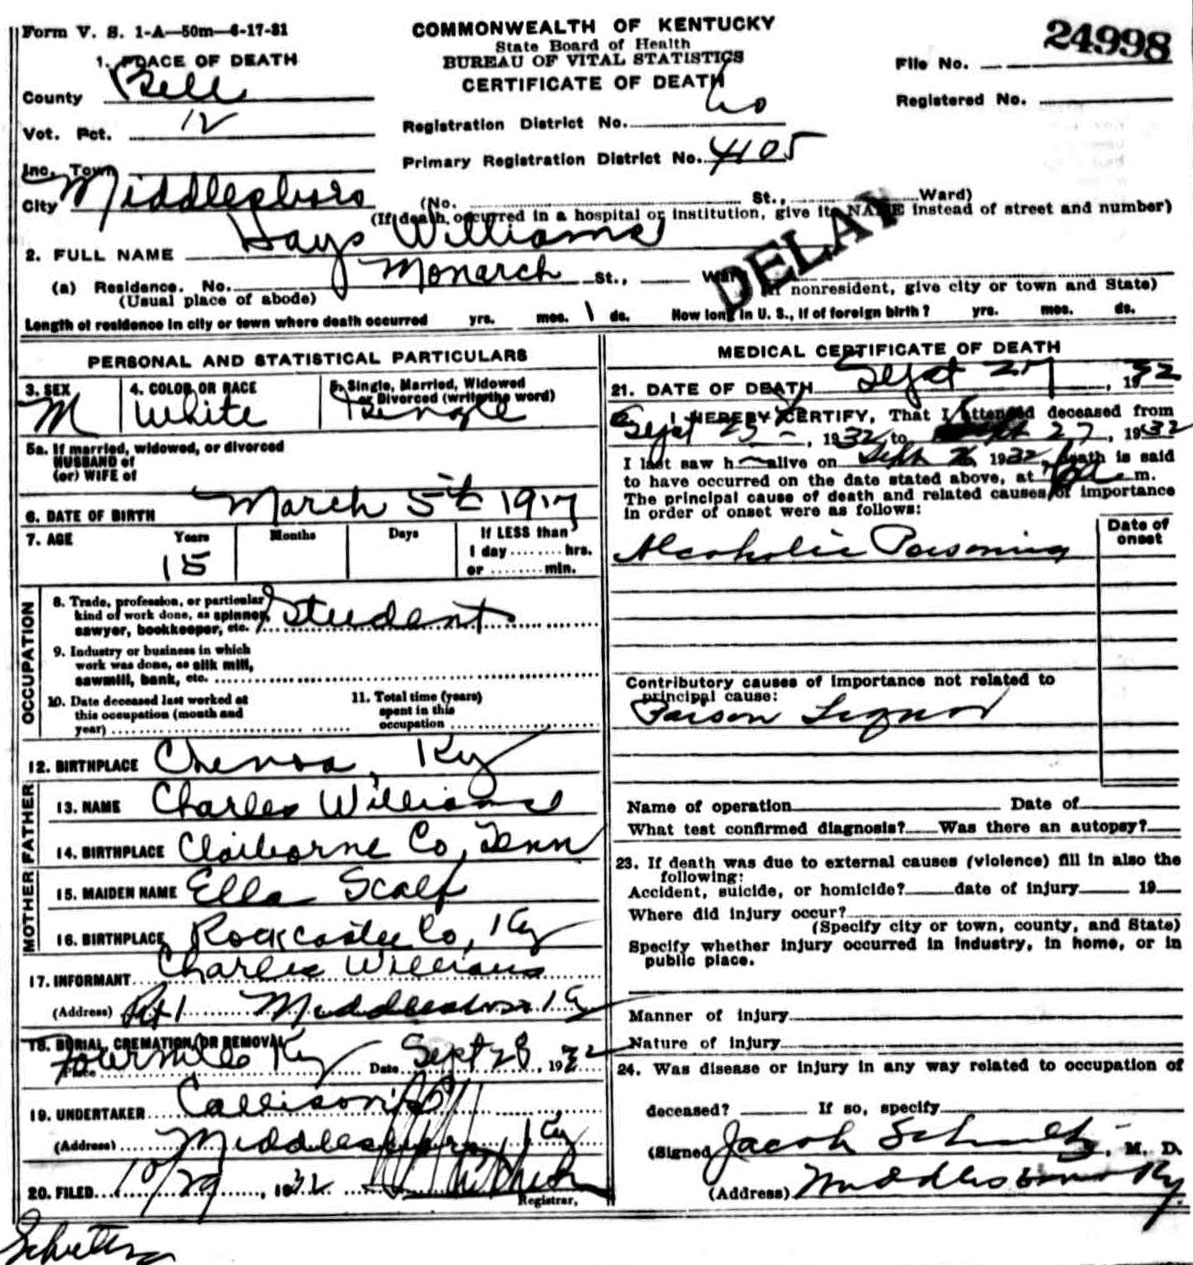 Form V. S. 1-A—50m—6-17-31
COMMONWEALTH OF KENTUCKY
State Board of Health
BUREAU OF VITAL STATISTICS
CERTIFICATE OF DEATH
24998
File No.
Registered No.
1. PLACE OF DEATH
County Bell
Vot. Pct. 12
Inc. Town
City Middlesboro
Registration District No. 60
Primary Registration District No. 4105
(No. St., Ward)
(If death occurred in a hospital or institution, give its NAME instead of street and number)
DELAY
2. FULL NAME Hays Williams
(a) Residence. No. Monarch St., Ward
(Usual place of abode) (If nonresident, give city or town and State)
Length of residence in city or town where death occurred yrs. mos. 1 ds. How long in U. S., if of foreign birth? yrs. mos. ds.
PERSONAL AND STATISTICAL PARTICULARS
3. SEX M
4. COLOR OR RACE White
5. Single, Married, Widowed or Divorced (write the word) Single
5a. If married, widowed, or divorced
HUSBAND of
(or) WIFE of
6. DATE OF BIRTH March 5th 1917
7. AGE Years 15 Months Days If LESS than 1 day hrs. or min.
OCCUPATION
8. Trade, profession, or particular kind of work done, as spinner, sawyer, bookkeeper, etc. Student
9. Industry or business in which work was done, as silk mill, sawmill, bank, etc.
10. Date deceased last worked at this occupation (month and year)
11. Total time (years) spent in this occupation
12. BIRTHPLACE Chenoa, Ky
FATHER
13. NAME Charles Williams
14. BIRTHPLACE Claiborne Co, Tenn
MOTHER
15. MAIDEN NAME Ella Scalf
16. BIRTHPLACE Rockcastle Co, Ky
17. INFORMANT Charles Williams
(Address) Rt 1 Middlesboro Ky
18. BURIAL, CREMATION, OR REMOVAL
Place Fourmile Ky Date Sept 28, 1932
19. UNDERTAKER Callison's
(Address) Middlesboro, Ky
20. FILED 10/29, 1932
Registrar.
MEDICAL CERTIFICATE OF DEATH
21. DATE OF DEATH Sept 27, 1932
22. I HEREBY CERTIFY, That I attended deceased from
Sept 25, 1932 to Sept 27, 1932
I last saw h alive on Sept 26 1932, death is said
to have occurred on the date stated above, at m.
The principal cause of death and related causes of importance
in order of onset were as follows:
Date of onset
Alcoholic Poisoning
Contributory causes of importance not related to
principal cause:
Poison Liquor
Name of operation Date of
What test confirmed diagnosis? Was there an autopsy?
23. If death was due to external causes (violence) fill in also the
following:
Accident, suicide, or homicide? date of injury 19
Where did injury occur?
(Specify city or town, county, and State)
Specify whether injury occurred in industry, in home, or in
public place.
Manner of injury
Nature of injury
24. Was disease or injury in any way related to occupation of
deceased? If so, specify
(Signed) Jacob Schultz, M. D.
(Address) Middlesboro Ky.